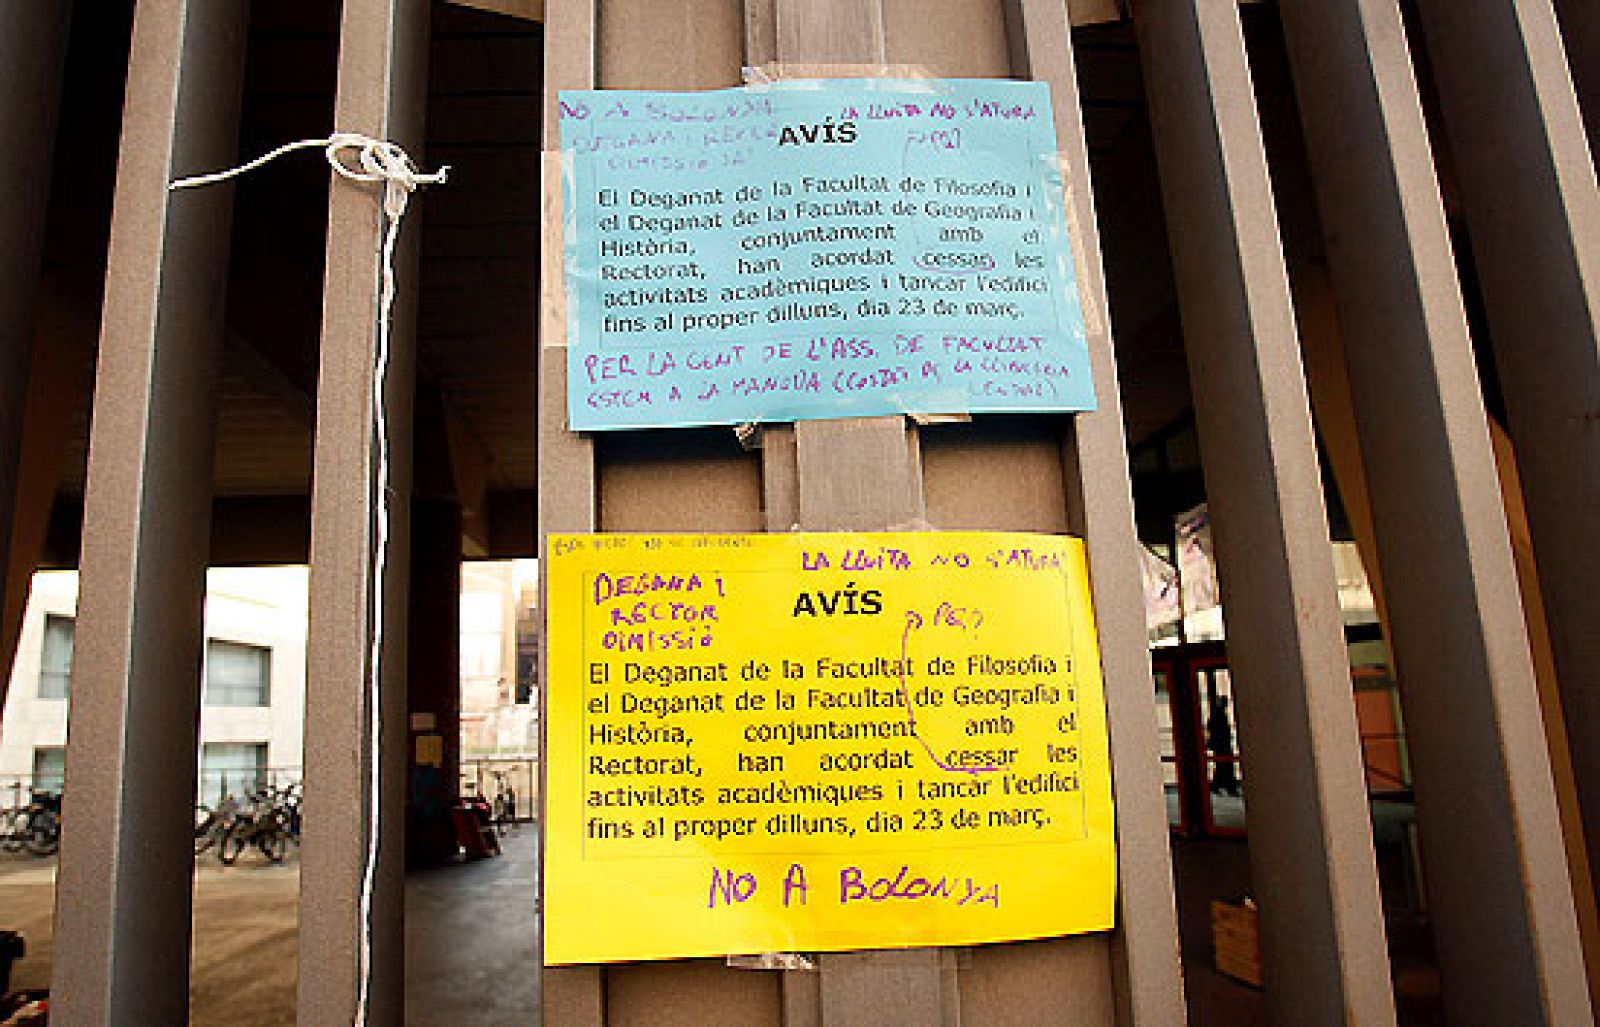 NO A BOLONYA
LA LLUITA NO S'ATURA
DEGANA I RECTOR
DIMISSIÓ JA!
AVÍS
El Deganat de la Facultat de Filosofia i
el Deganat de la Facultat de Geografia i
Història, conjuntament amb el
Rectorat, han acordat cessar les
activitats acadèmiques i tancar l'edifici
fins al proper dilluns, dia 23 de març.
PER LA GENT DE L'ASS. DE FACULTAT
ESTEM A LA MANOVA (COSTAT DE LA LLIBRERIA
CENTRAL)
LA LLUITA NO S'ATURA
DEGANA i
RECTOR
DIMISSIÓ
AVÍS
El Deganat de la Facultat de Filosofia i
el Deganat de la Facultat de Geografia i
Història, conjuntament amb el
Rectorat, han acordat cessar les
activitats acadèmiques i tancar l'edifici
fins al proper dilluns, dia 23 de març.
NO A BOLONYA